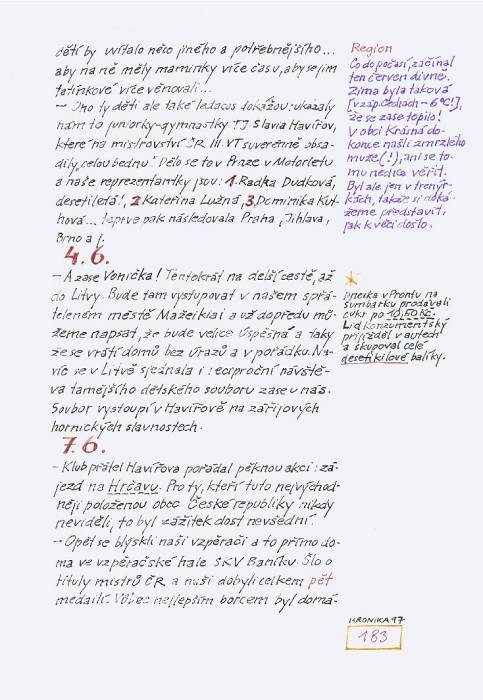 dětí by uvítalo něco jiného a potřebnějšího...
aby na ně měly maminky více času, aby se jim
tatínkové více věnovali...
- Ono ty děti ale také ledacos dokážou: ukázaly
nám to juniorky-gymnastky TJ Slavia Havířov,
které na mistrovství ČR III. VT suverénně obsa-
dily "celou bednu". Dělo se to v Praze v Motorletu
a naše reprezentantky jsou: 1. Radka Dudková,
desetiletá!, 2 Kateřina Lužná, 3, Dominika Kut-
hová... teprve pak následovala Praha, Jihlava,
Brno a j.
4.6.
- A zase Vonička! Tentokrát na delší cestě, až
do Litvy. Bude tam vystupovat v našem spřá-
teleném městě Mažeikiai a už dopředu mů-
žeme napsat, že bude velice úspěšná a taky
že se vrátí domů bez úrazů a v pořádku. Na-
víc se v Litvě sjednala i reciproční návště-
va tamějšího dětského souboru zase u nás.
Soubor vystoupí v Havířově na zářijových
hornických slavnostech.
7.6.
- Klub přátel Havířova pořádal pěknou akci: zá-
jezd na Hrčavu. Pro ty, kteří tuto nejvýchod-
něji položenou obec České republiky nikdy
neviděli, to byl zážitek dost nevšední.
- Opět se blýskli naši vzpěrači a to přímo do-
ma ve vzpěračské hale SKV Baníku. Šlo o
tituly mistrů ČR a naši dobyli celkem pět
medailí. Vůbec nejlepším borcem byl domá-
Region
Co do počasí, začínal
ten červen divně.
Zima byla taková
[v záp. Čechách - 6°C!],
že se zase topilo!
V obci Krásná do-
konce našli zmrzlého
muže (!), ani se to-
mu nedá věřit.
Byl ale jen v trenýr-
kách, takže si doká-
žeme představit,
jak k věci došlo.
Dneska v Prontu na
Šumbarku prodávali
cukr po 10,50 Kč.
Lid konzumentský
přijížděl v autech
a skupoval celé
desetikilové balíky.
KRONIKA 97
183